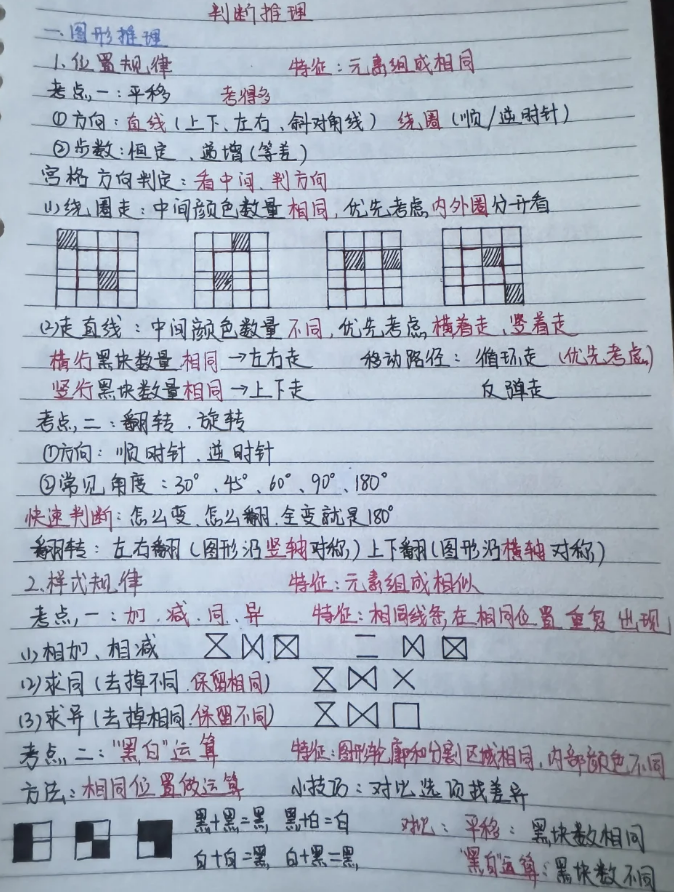 判断推理
一、图形推理
1.位置规律 特征:元素组成相同
考点一:平移 考得多
①方向:直线(上下、左右、斜对角线) 绕圈(顺/逆时针)
②步数:恒定、递增(等差)
宫格方向判定:看中间、判方向
(1)绕圈走:中间颜色数量相同,优先考虑内外圈分开看
(2)走直线:中间颜色数量不同,优先考虑横着走、竖着走
横行黑块数量相同→左右走 移动路径:循环走(优先考虑)
竖行黑块数量相同→上下走 反弹走
考点二:翻转、旋转
①方向:顺时针、逆时针
②常见角度:30°、45°、60°、90°、180°
快速判断:怎么变、怎么翻、全变就是180°
翻转:左右翻(图形沿竖轴对称)上下翻(图形沿横轴对称)
2.样式规律 特征:元素组成相似
考点一:加、减、同、异 特征:相同线条在相同位置重复出现
(1)相加、相减
(2)求同(去掉不同、保留相同)
(3)求异(去掉相同、保留不同)
考点二:"黑白"运算 特征:图形轮廓和分割区域相同,内部颜色不同
方法:相同位置做运算 小技巧:对比选项找差异
黑+黑=黑 黑+白=白 对比:平移:黑块数相同
白+白=黑 白+黑=黑 "黑白"运算:黑块数不同